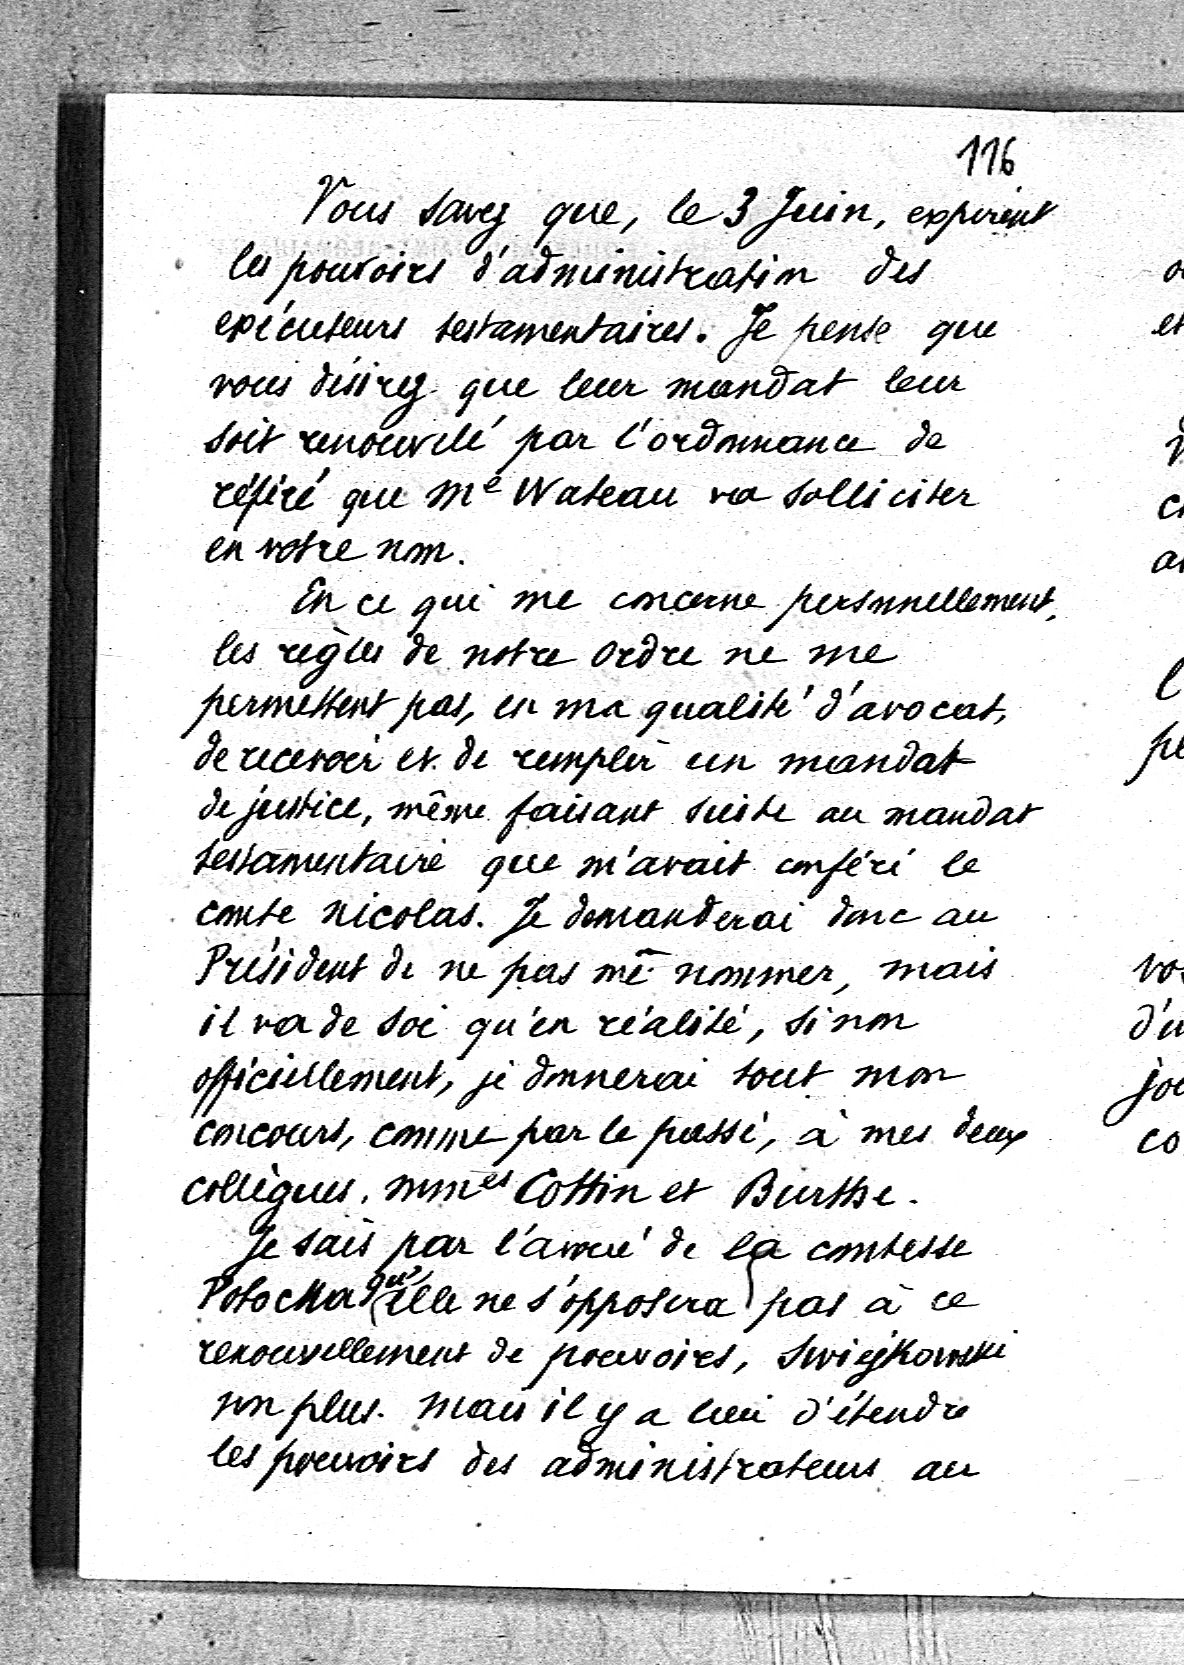 116
Vous savez que, le 3 Juin, expirent
les pouvoirs d'administration des
exécuteurs testamentaires. Je pense que
vous désirez que leur mandat leur
soit renouvelé par l'ordonnance de
référé que Me Wateau va solliciter
en votre nom.
En ce qui me concerne personnellement,
les règles de notre ordre ne me
permettent pas, en ma qualité d'avocat,
de recevoir et de remplir un mandat
de justice, même faisant suite au mandat
testamentaire que m'avait conféré le
comte Nicolas. Je demanderai donc au
Président de ne pas me nommer, mais
il va de soi qu'en réalité, sinon
officiellement, je donnerai tout mon
concours, comme par le passé, à mes deux
collègues. Mmes Cottin et Burthe.
Je sais par l'avoué de la comtesse
Potocka qu'elle ne s'opposera pas à ce
renouvellement de pouvoirs, Swiejkowski
non plus. Mais il y a lieu d'étendre
les pouvoirs des administrateurs au